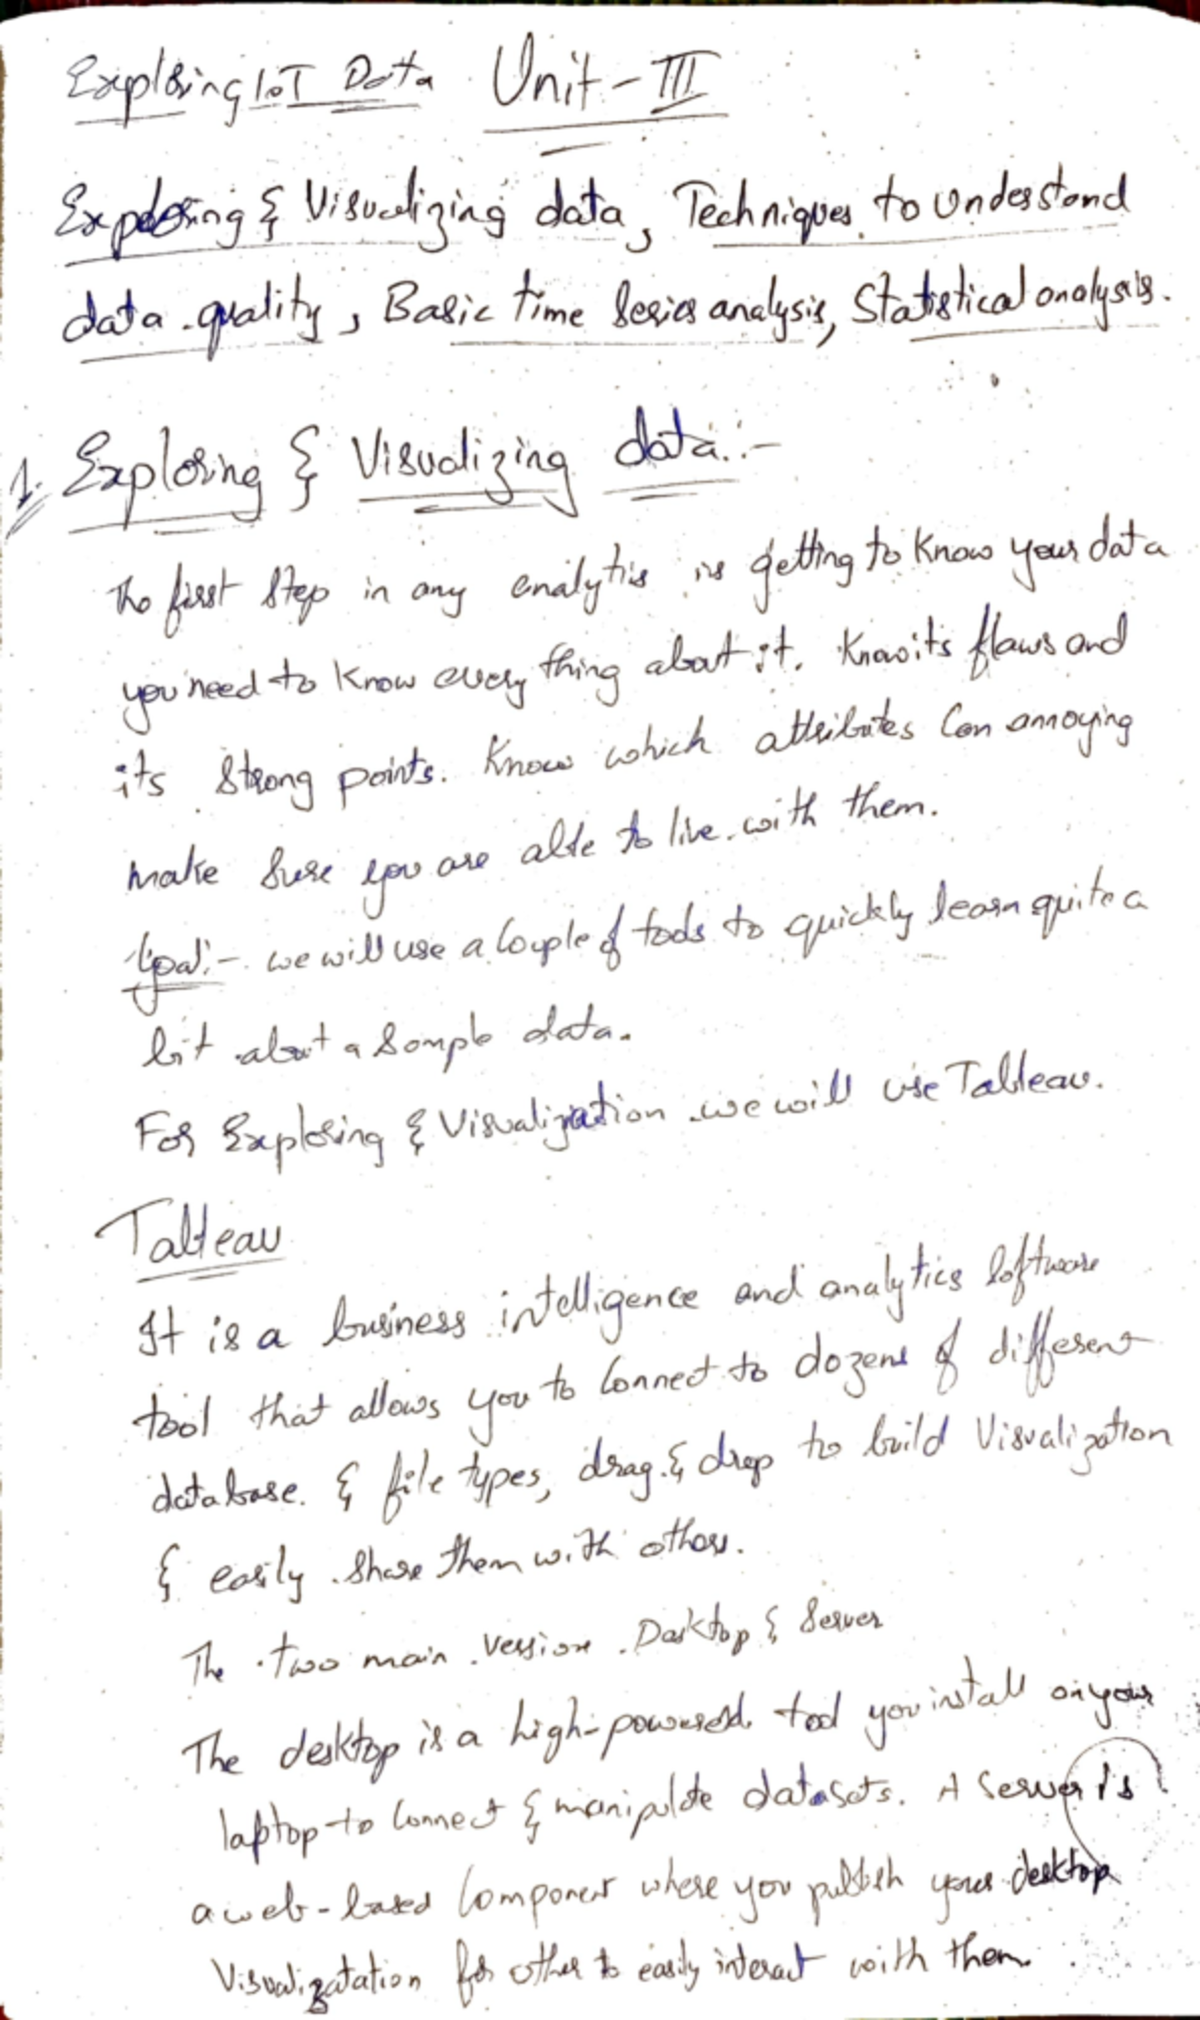 Exploring IoT Data Unit-III
Exploring & Visualizing data, Techniques to understand
data quality, Basic time series analysis, Statistical analysis.
1. Exploring & Visualizing data:-
The first step in any analytis is getting to know your data
you need to know every thing about it. Know its flaws and
its strong points. Know which attributes can annoying
make sure you are able to live with them.
Goal:- we will use a couple of tools to quickly learn quite a
bit about a sample data.
For Exploring & Visualization we will use Tableau.
Tableau
It is a business intelligence and analytics software
tool that allows you to connect to dozens of different
database & file types, drag & drop to build Visualization
& easily share them with others.
The two main version Desktop & Server
The desktop is a high-powered tool you install on your
laptop to connect & manipulate datasets. A Server is
a web-based component where you publish your desktop
Visualizatation for other to easily interact with them.